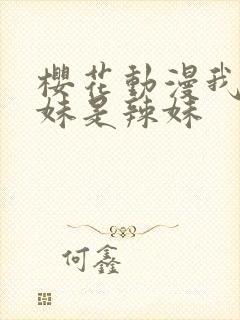 櫻花動漫我
妹是辣妹
何鑫